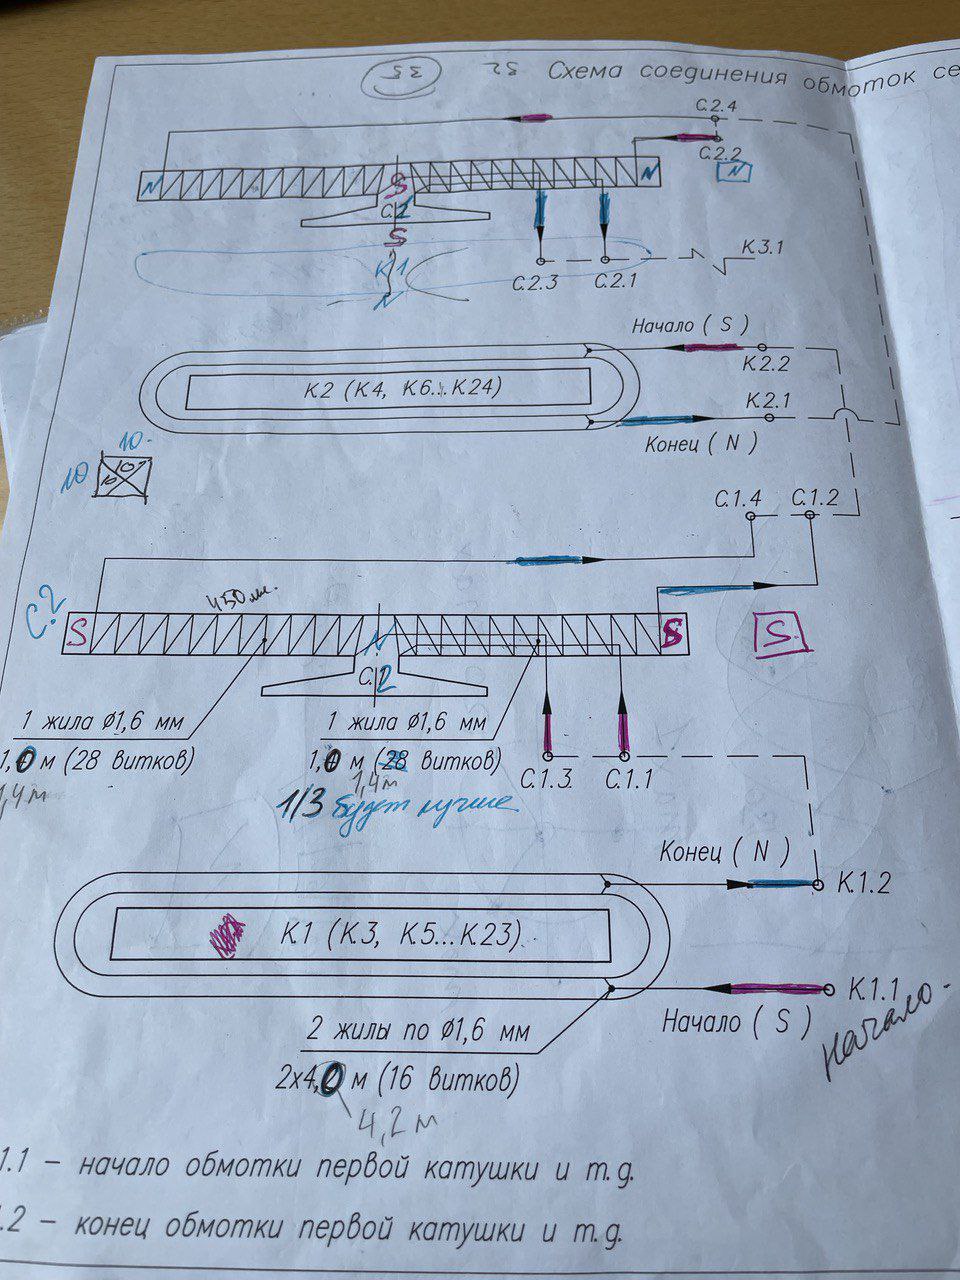 35 32 Схема соединения обмоток се
С.2.4
С.2.2
N S N N
С.1
S
К1
N
К.3.1
С.2.3 С.2.1
Начало ( S )
К.2.2
К2 (К4, К6...К24)
К.2.1
Конец ( N )
10
10
10
10
С.1.4 С.1.2
450 мм.
С.2
S N S S
С.2
1 жила Ø1,6 мм 1 жила Ø1,6 мм
1,0 м (28 витков) 1,0 м (28 витков)
1,4 м 1,4 м
С.1.3 С.1.1
1/3 будет лучше
Конец ( N )
К.1.2
К1 (К3, К5...К23)
К.1.1
Начало ( S )
начало
2 жилы по Ø1,6 мм
2х4,0 м (16 витков)
4,2 м
1.1 – начало обмотки первой катушки и т.д.
.2 – конец обмотки первой катушки и т.д.